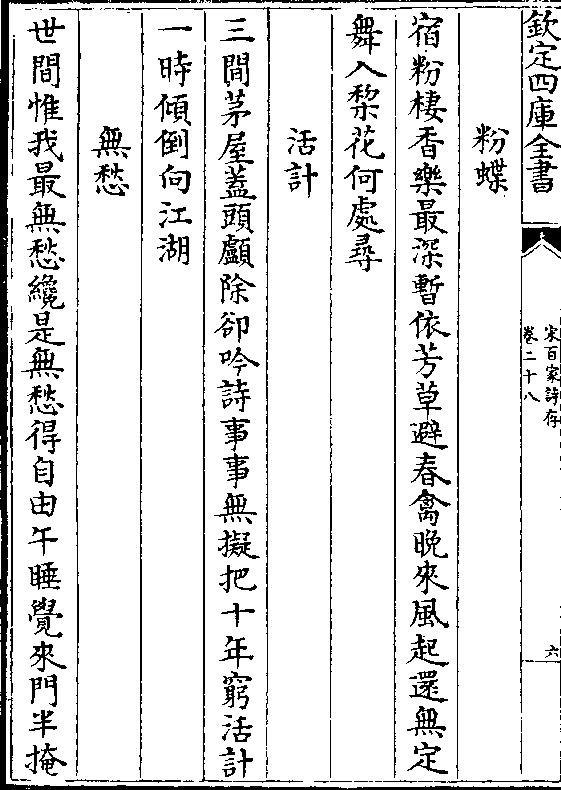 欽定四庫全書
宋百家詩存
卷二十八
六
粉蝶
宿粉棲香樂最深暫依芳草避春禽晚來風起還無定
舞入棃花何處尋
活計
三間茅屋蓋頭顱除卻吟詩事事無擬把十年窮活計
一時傾倒向江湖
無愁
世間惟我最無愁纔是無愁得自由午睡覺來門半掩